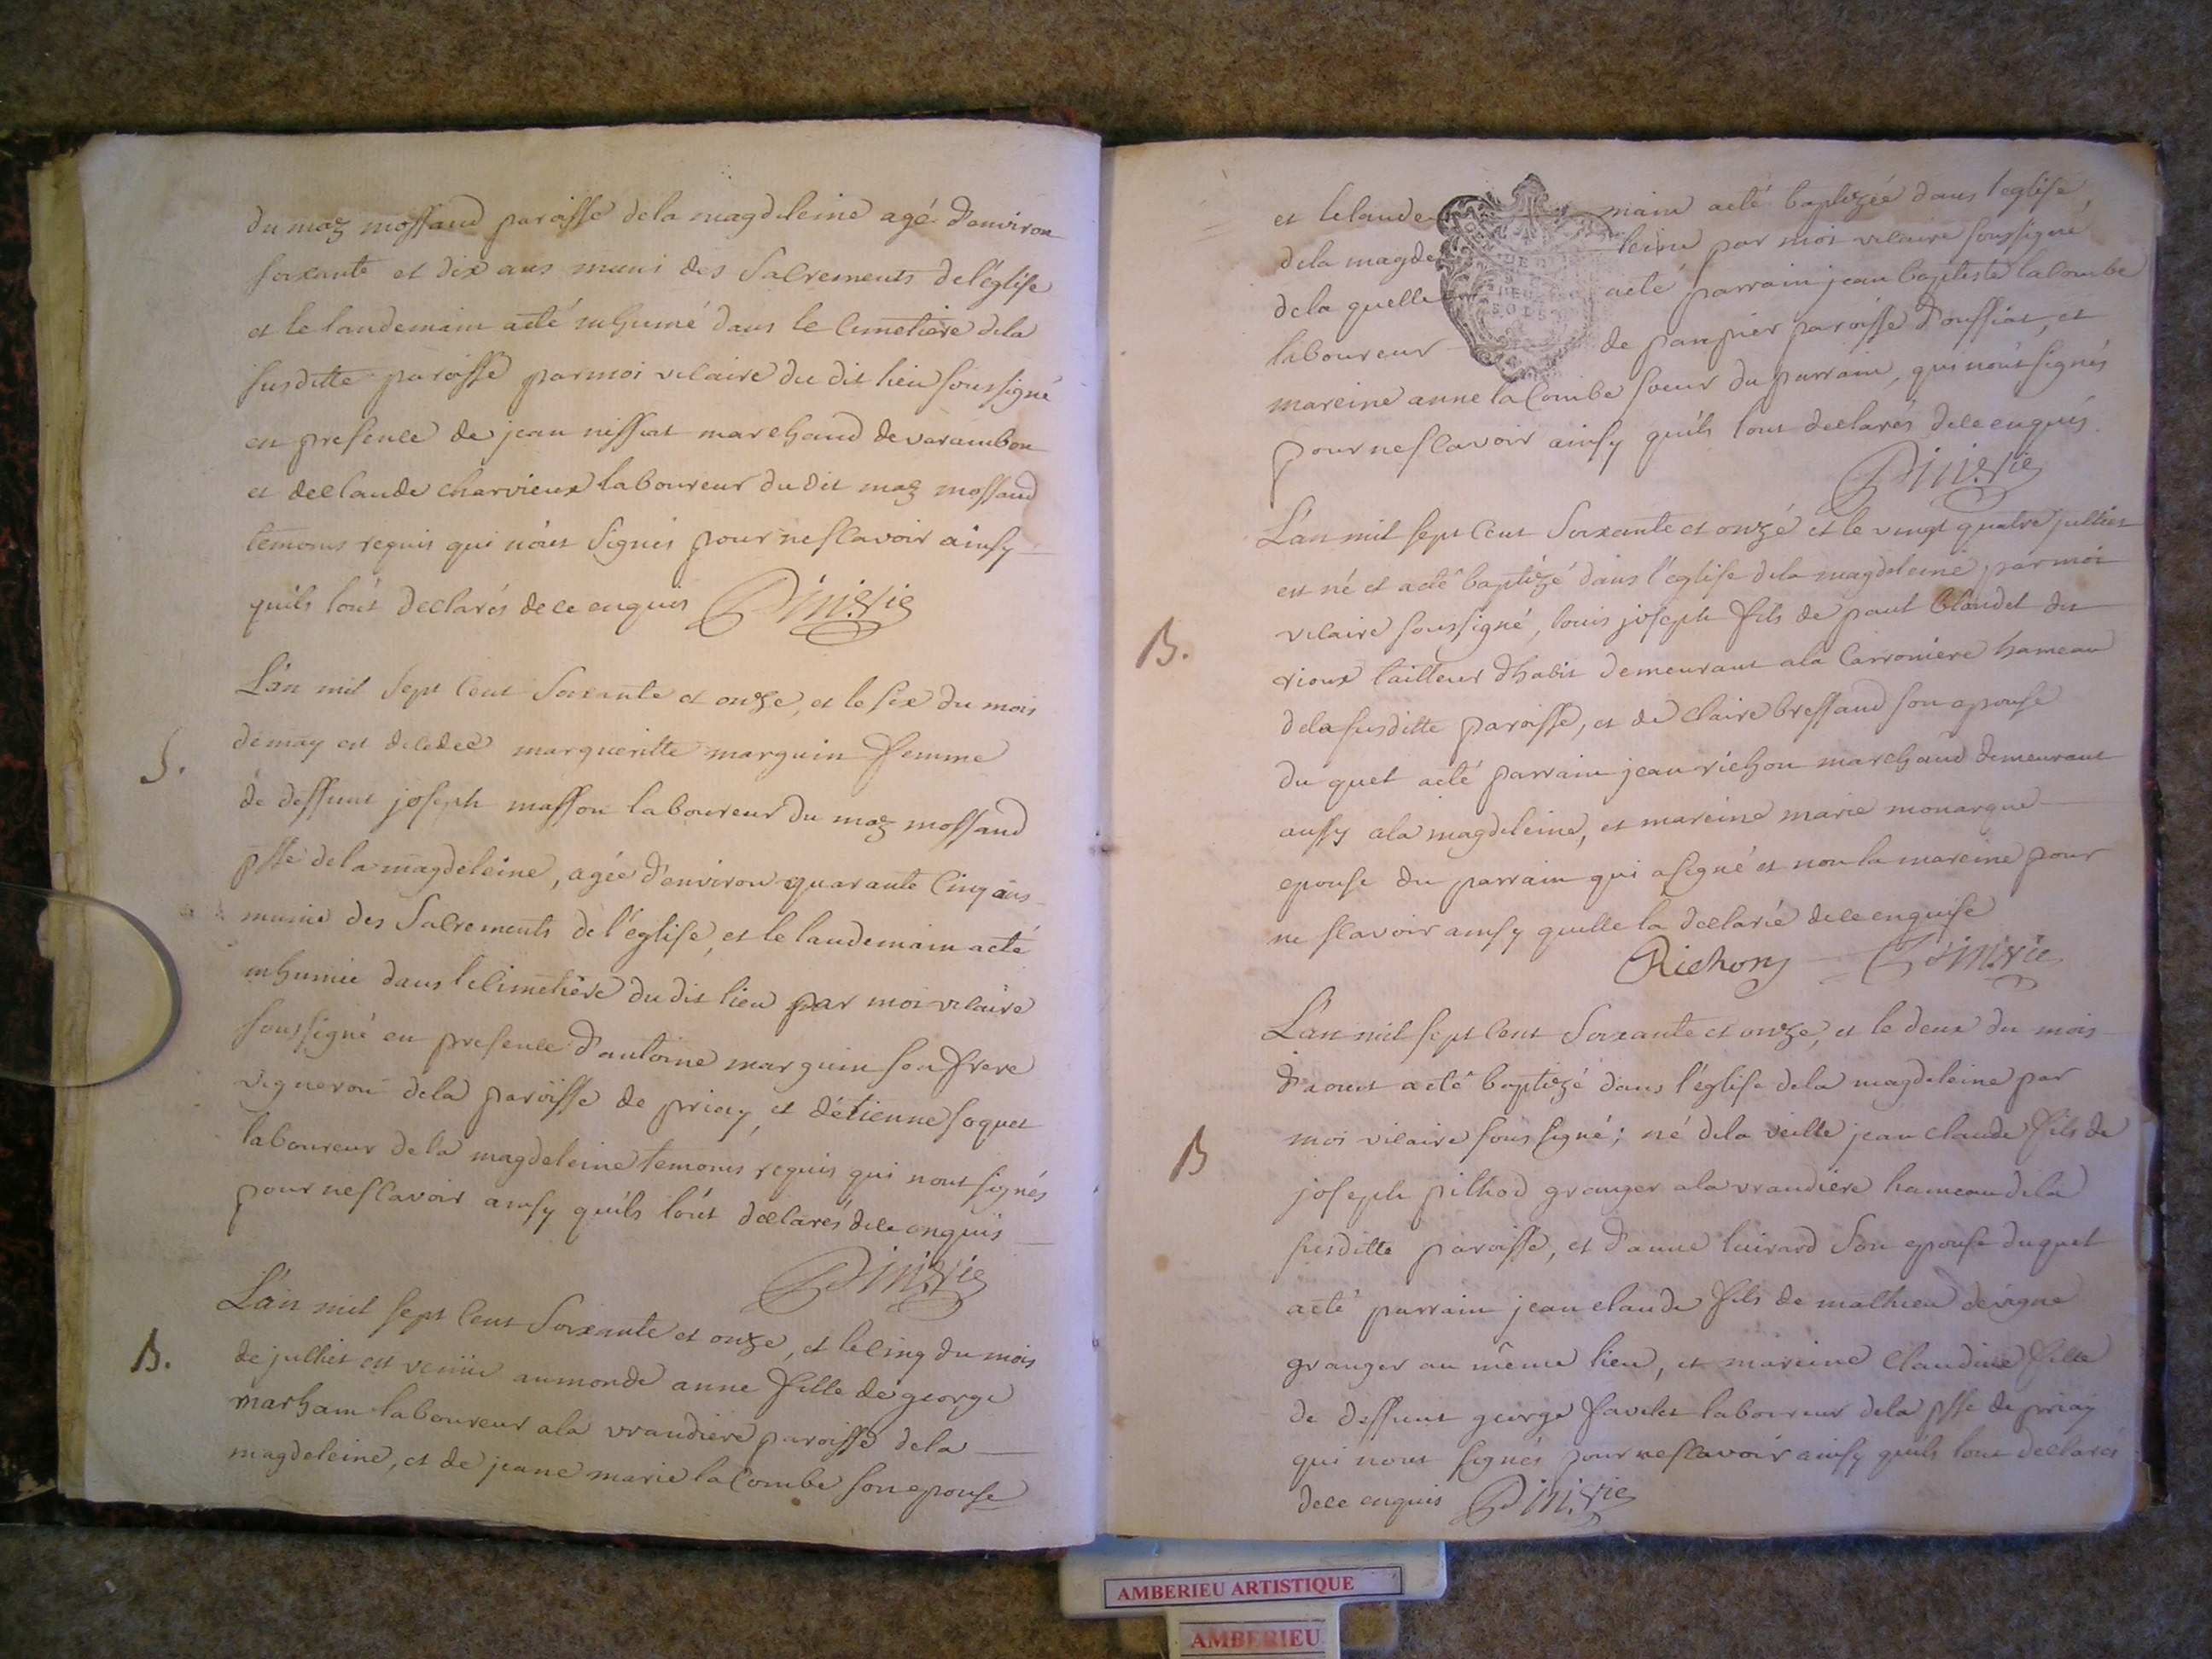 du maz mossand paroisse dela magdeleine agé d'environ
soixante et dix ans muni des Sacrements de l'église
et le landemain acté inhumé dans le Cimetière dela
susditte paroisse par moi vicaire du dit lieu soussigné
en presence de jean nissiat marchand de varambon
et declaude charvieux laboureur du dit maz mossand
temoins requis qui nónt signés pour ne scavoir ainsy
quils lónt declarés de ce enquis Piin. vic
L'an mil sept cent soixante et onze, et le six du mois
S.
de may est decedée margueritte marguin femme
de deffunt joseph masson laboureur du maz mossand
psse dela magdeleine, agée d'environ quarante cinq ans
munie des Sacrements de l'église, et le landemain acté
inhumée dans le cimetière du dit lieu par moi vicaire
soussigné en presence d'antoine marguin son frere
vigneron dela paroisse de priay, et détienne soquet
laboureur dela magdeleine temoins requis qui nont signés
pour ne scavoir ainsy quils lónt declarés de ce enquis
L'an mil sept cent soixante et onze, et le cinq du mois
B.
de julliet est venüe au monde anne fille de george
marham laboureur ala vrandiere paroisse dela
magdeleine, et de jeane marie la Combe son epouse
et le lande main acté baptizée dans l'eglise
dela magde leine par moi vicaire soussigné
de la quelle acté parrain jean baptiste lacombe
laboureur de panpier paroisse d'oussiat, et
mareine anne la Combe soeur du parrain, qui nónt signés
pour ne scavoir ainsy quils lont declarés de ce enquis
L'an mil sept cent soixante et onzé et le vingt quatre julliet
est né et acté baptizé dans l'église dela magdeleine par moi
B.
vicaire soussigné, louis joseph fils de paul Claudet du
rioux tailleur dhabit demeurant ala Carroniere hameau
dela susditte paroisse, et de claire bressand son epouse
du quel acté parrain jean richon marchand demeurant
aussy ala magdeleine, et mareine marie monarque
epouse du parrain qui a signé et non la mareine pour
ne scavoir ainsy quelle la declaré de ce enquise
Richon
L'an mil sept cent soixante et onze, et le deux du mois
d'aoust acté baptizé dans l'église dela magdeleine par
B
moi vicaire soussigné; né dela veille jean claude fils de
joseph pilhod granger ala vrandiere hameau dela
susditte paroisse, et d'anne luirard son epouse duquel
acté parrain jean claude fils de mathieu devigne
granger au même lieu, et mareine Claudine fille
de deffunt george favelet laboureur dela psse de priay
qui nónt signés pour ne scavoir ainsy quils lont declarés
de ce enquis
AMBERIEU ARTISTIQUE
AMBERIEU